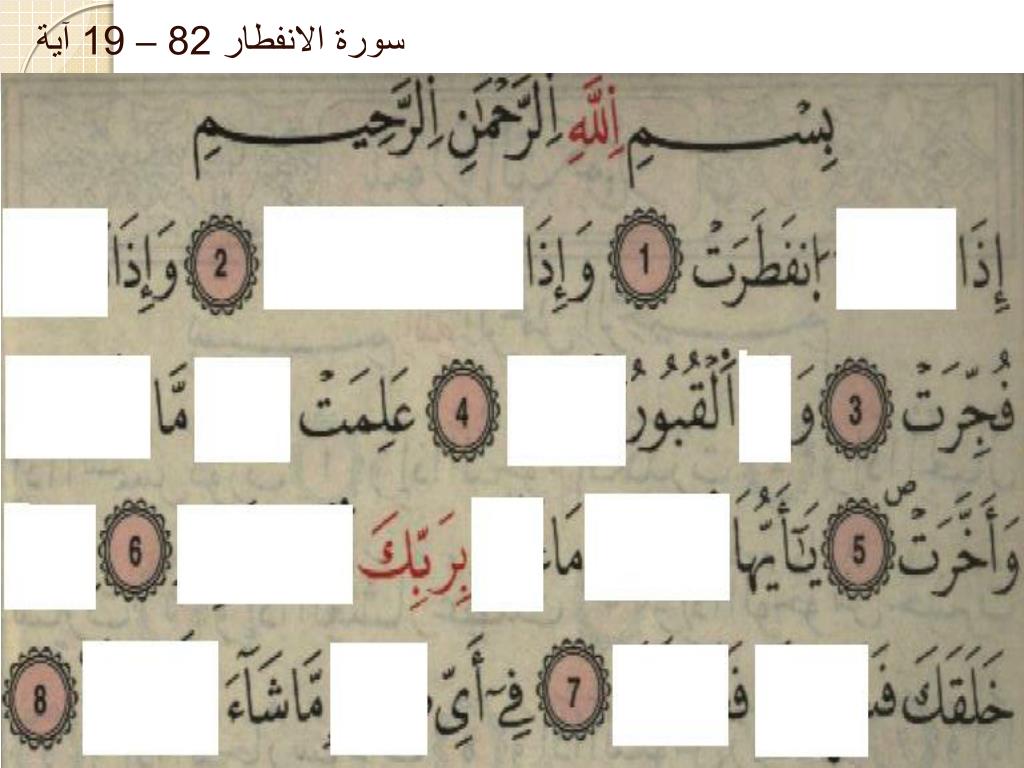 سورة الانفطار 82 – 19 آية
بِسْمِ اِ۬للَّهِ اِ۬لرَّحْمَٰنِ اِ۬لرَّحِيمِ
إِذَا اَ۪نفَطَرَتْ 1 وَإِذَا 2 وَإِذَا
فُجِّرَتْ 3 وَ اَ۬لْقُبُورُ 4 عَلِمَتْ مَّا
وَأَخَّرَتْ ۖ 5 يَٰٓأَيُّهَا مَا بِرَبِّكَ 6
خَلَقَكَ 7 فِےٓ أَيِّ مَّا شَآءَ 8